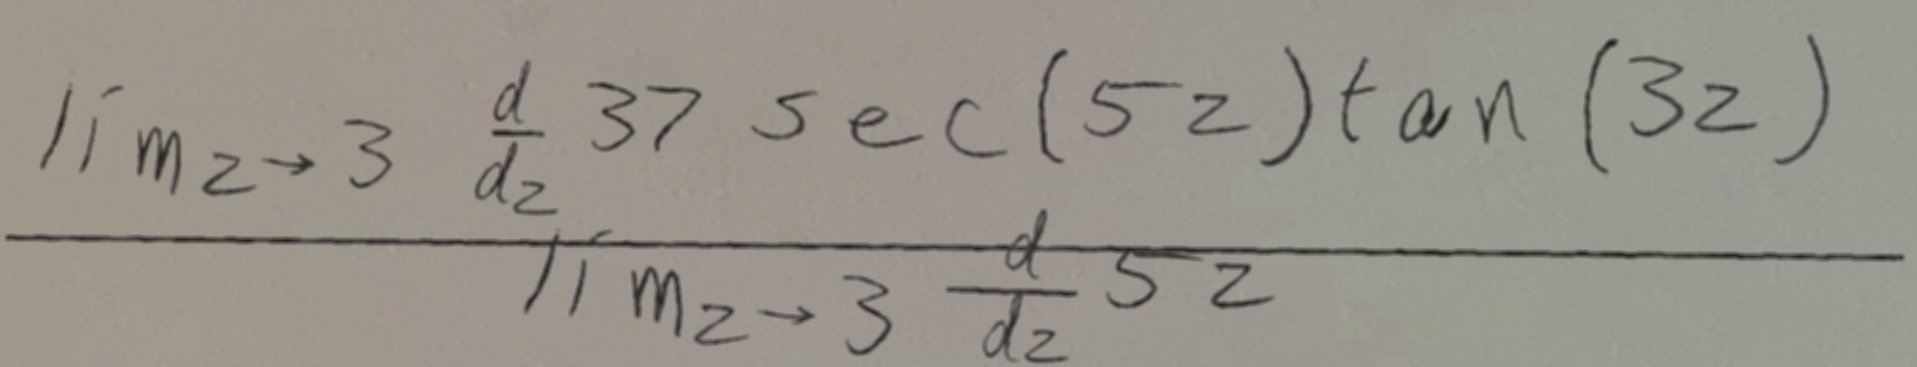 lim z→3 d/dz 37 sec(5z)tan(3z)
lim z→3 d/dz 5z